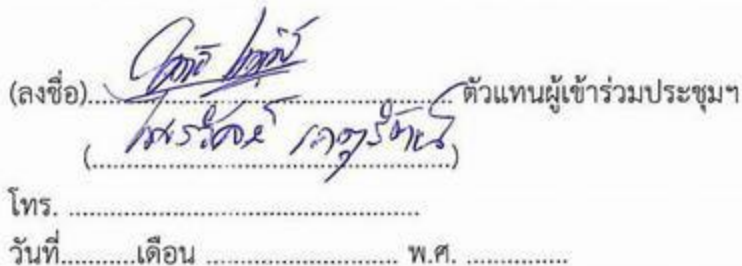 (ลงชื่อ)........................................................ตัวแทนผู้เข้าร่วมประชุมฯ
(........................................................)
โทร. ....................................................
วันที่............เดือน ............................ พ.ศ. ...............